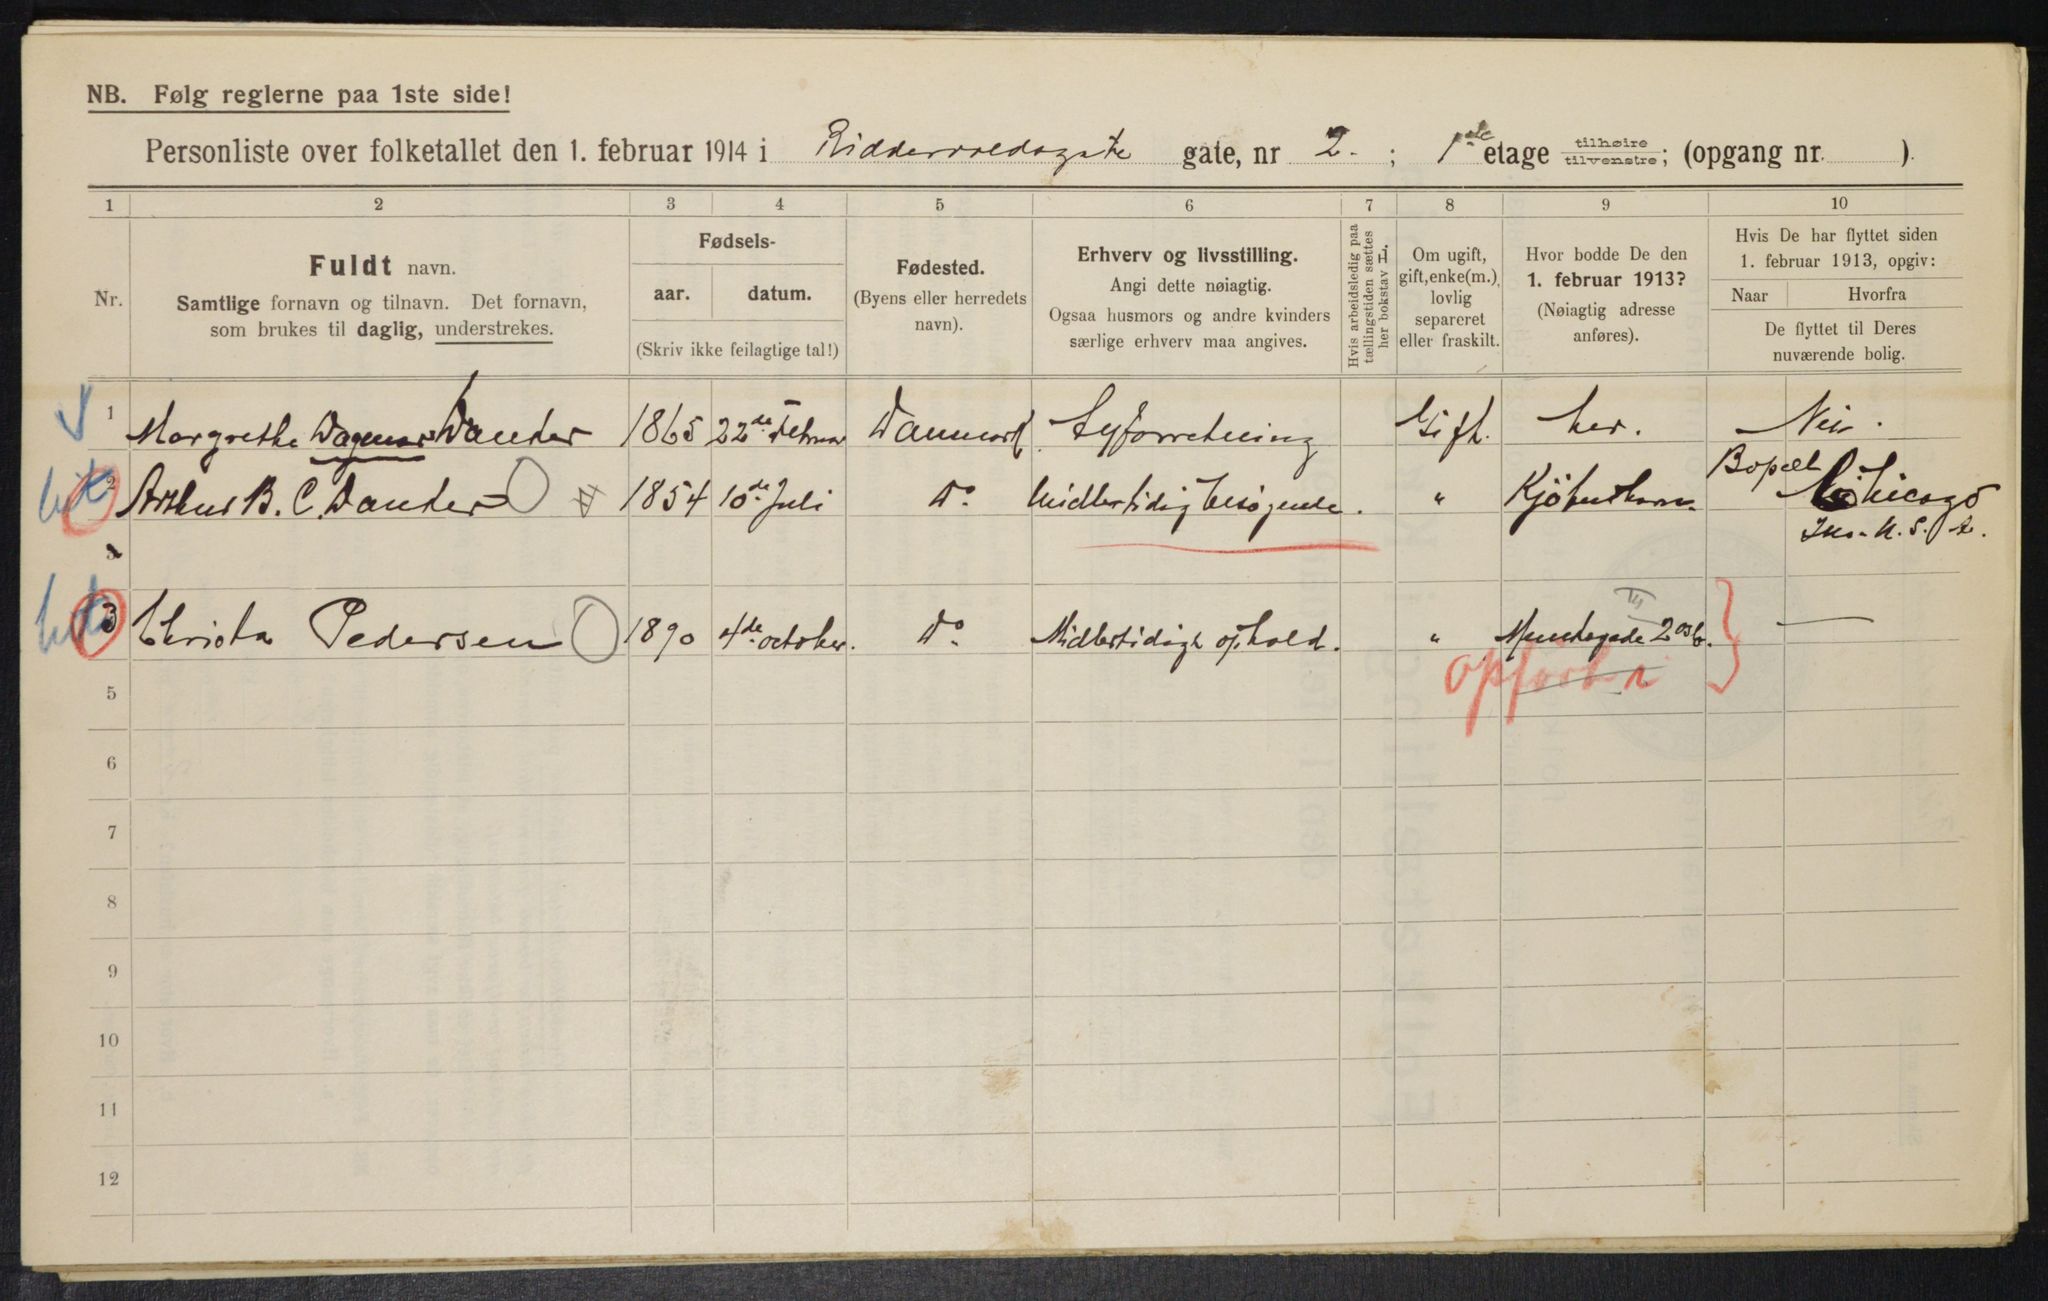 NB. Følg reglerne paa 1ste side!
Personliste over folketallet den 1. februar 1914 i Riddervoldsgate gate, nr 2. ; 1ste etage tilhøire tilvenstre; (opgang nr. ).
1 2 3 4 5 6 7 8 9 10
Nr.
Fuldt navn.
Samtlige fornavn og tilnavn. Det fornavn,
som brukes til daglig, understrekes.
Fødsels-
aar. datum.
(Skriv ikke feilagtige tal!)
Fødested.
(Byens eller herredets
navn).
Erhverv og livsstilling.
Angi dette nøiagtig.
Ogsaa husmors og andre kvinders
særlige erhverv maa angives.
Hvis arbeidsledig paa
tællingstiden sættes
her bokstav L.
Om ugift,
gift, enke(m.),
lovlig
separeret
eller fraskilt.
Hvor bodde De den
1. februar 1913?
(Nøiagtig adresse
anføres).
Hvis De har flyttet siden
1. februar 1913, opgiv:
Naar Hvorfra
De flyttet til Deres
nuværende bolig.
1 Margrethe Dagmar Wander 1865 22de Februar Danmark Syforretning Gift. her. Nei.
2 Arthur B. C. Wander 1854 10de Juli Do Midlertidig besøgende. " Kjöbenhavn Bopæl Chicago
U. S. A.
3 Christa Pedersen 1890 4de october. Do Midlertidigt ophold. " Munkegade 2 Oslo. —
opført
5
6
7
8
9
10
11
12